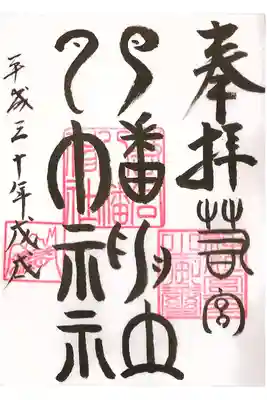 奉拝 若宮
八幡神社
平成三十年戊戌